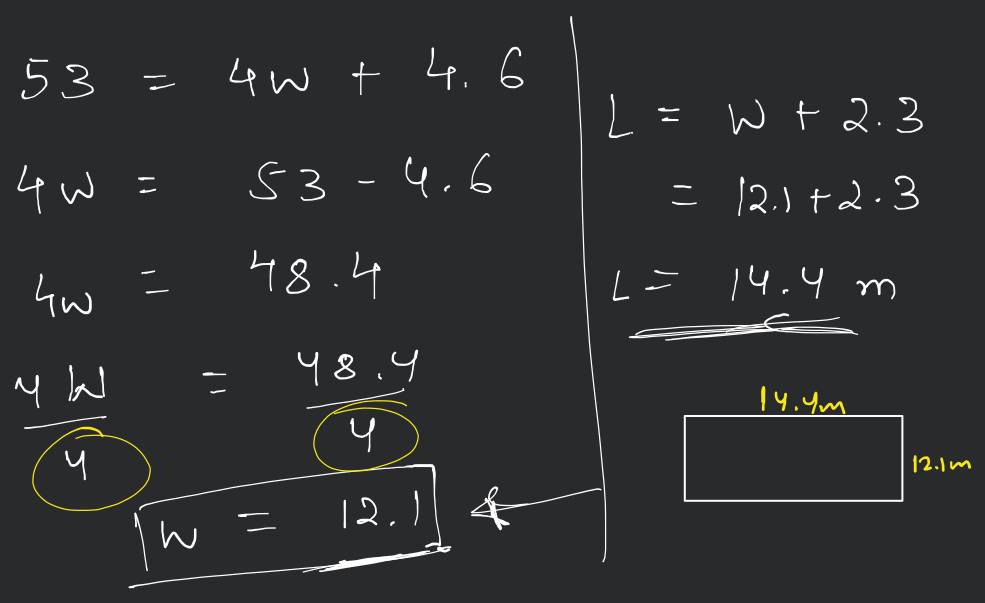 53 = 4w + 4.6
4w = 53 - 4.6
4w = 48.4
4w/4 = 48.4/4
w = 12.1
L = w + 2.3
= 12.1 + 2.3
L = 14.4 m
14.4m
12.1m